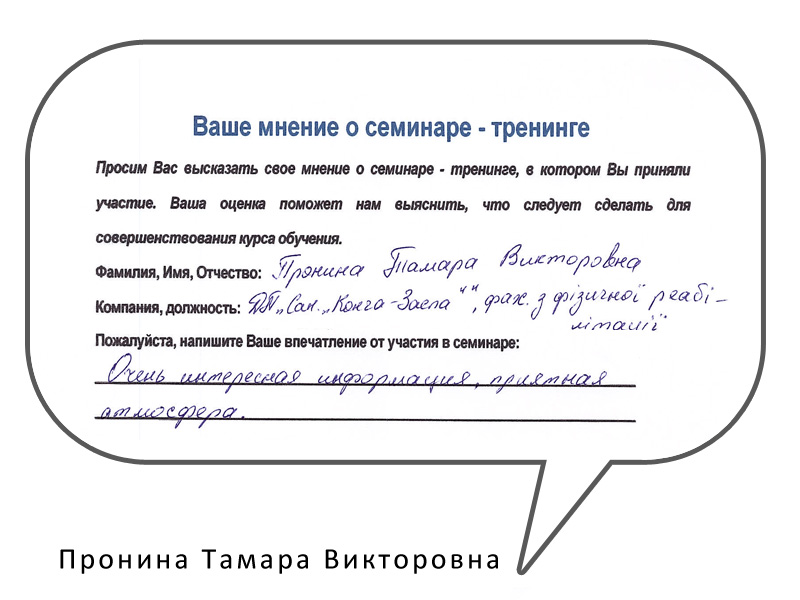 Ваше мнение о семинаре - тренинге
Просим Вас высказать свое мнение о семинаре - тренинге, в котором Вы приняли
участие. Ваша оценка поможет нам выяснить, что следует сделать для
совершенствования курса обучения.
Фамилия, Имя, Отчество: Пронина Тамара Викторовна
Компания, должность: ДП „Сан. „Конча-Заспа"", фах. з фізичної реабі-
літації
Пожалуйста, напишите Ваше впечатление от участия в семинаре:
Очень интересная информация, приятная
атмосфера.
Пронина Тамара Викторовна